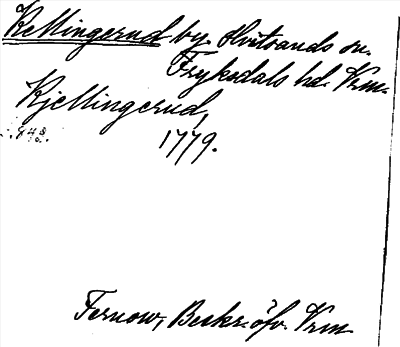 Kellingerud by, Hvitsands sn.
Fryksdals hd. Vrm.
Kjellingerud,
1779.
Fernow, Beskr. öfv. Vrm.